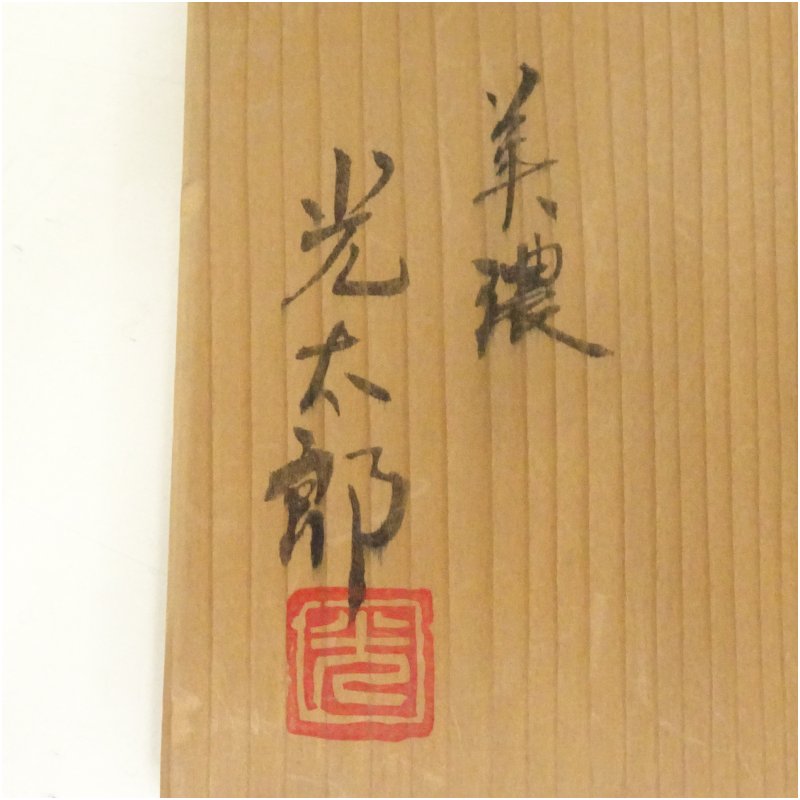 美濃
光太郎
光